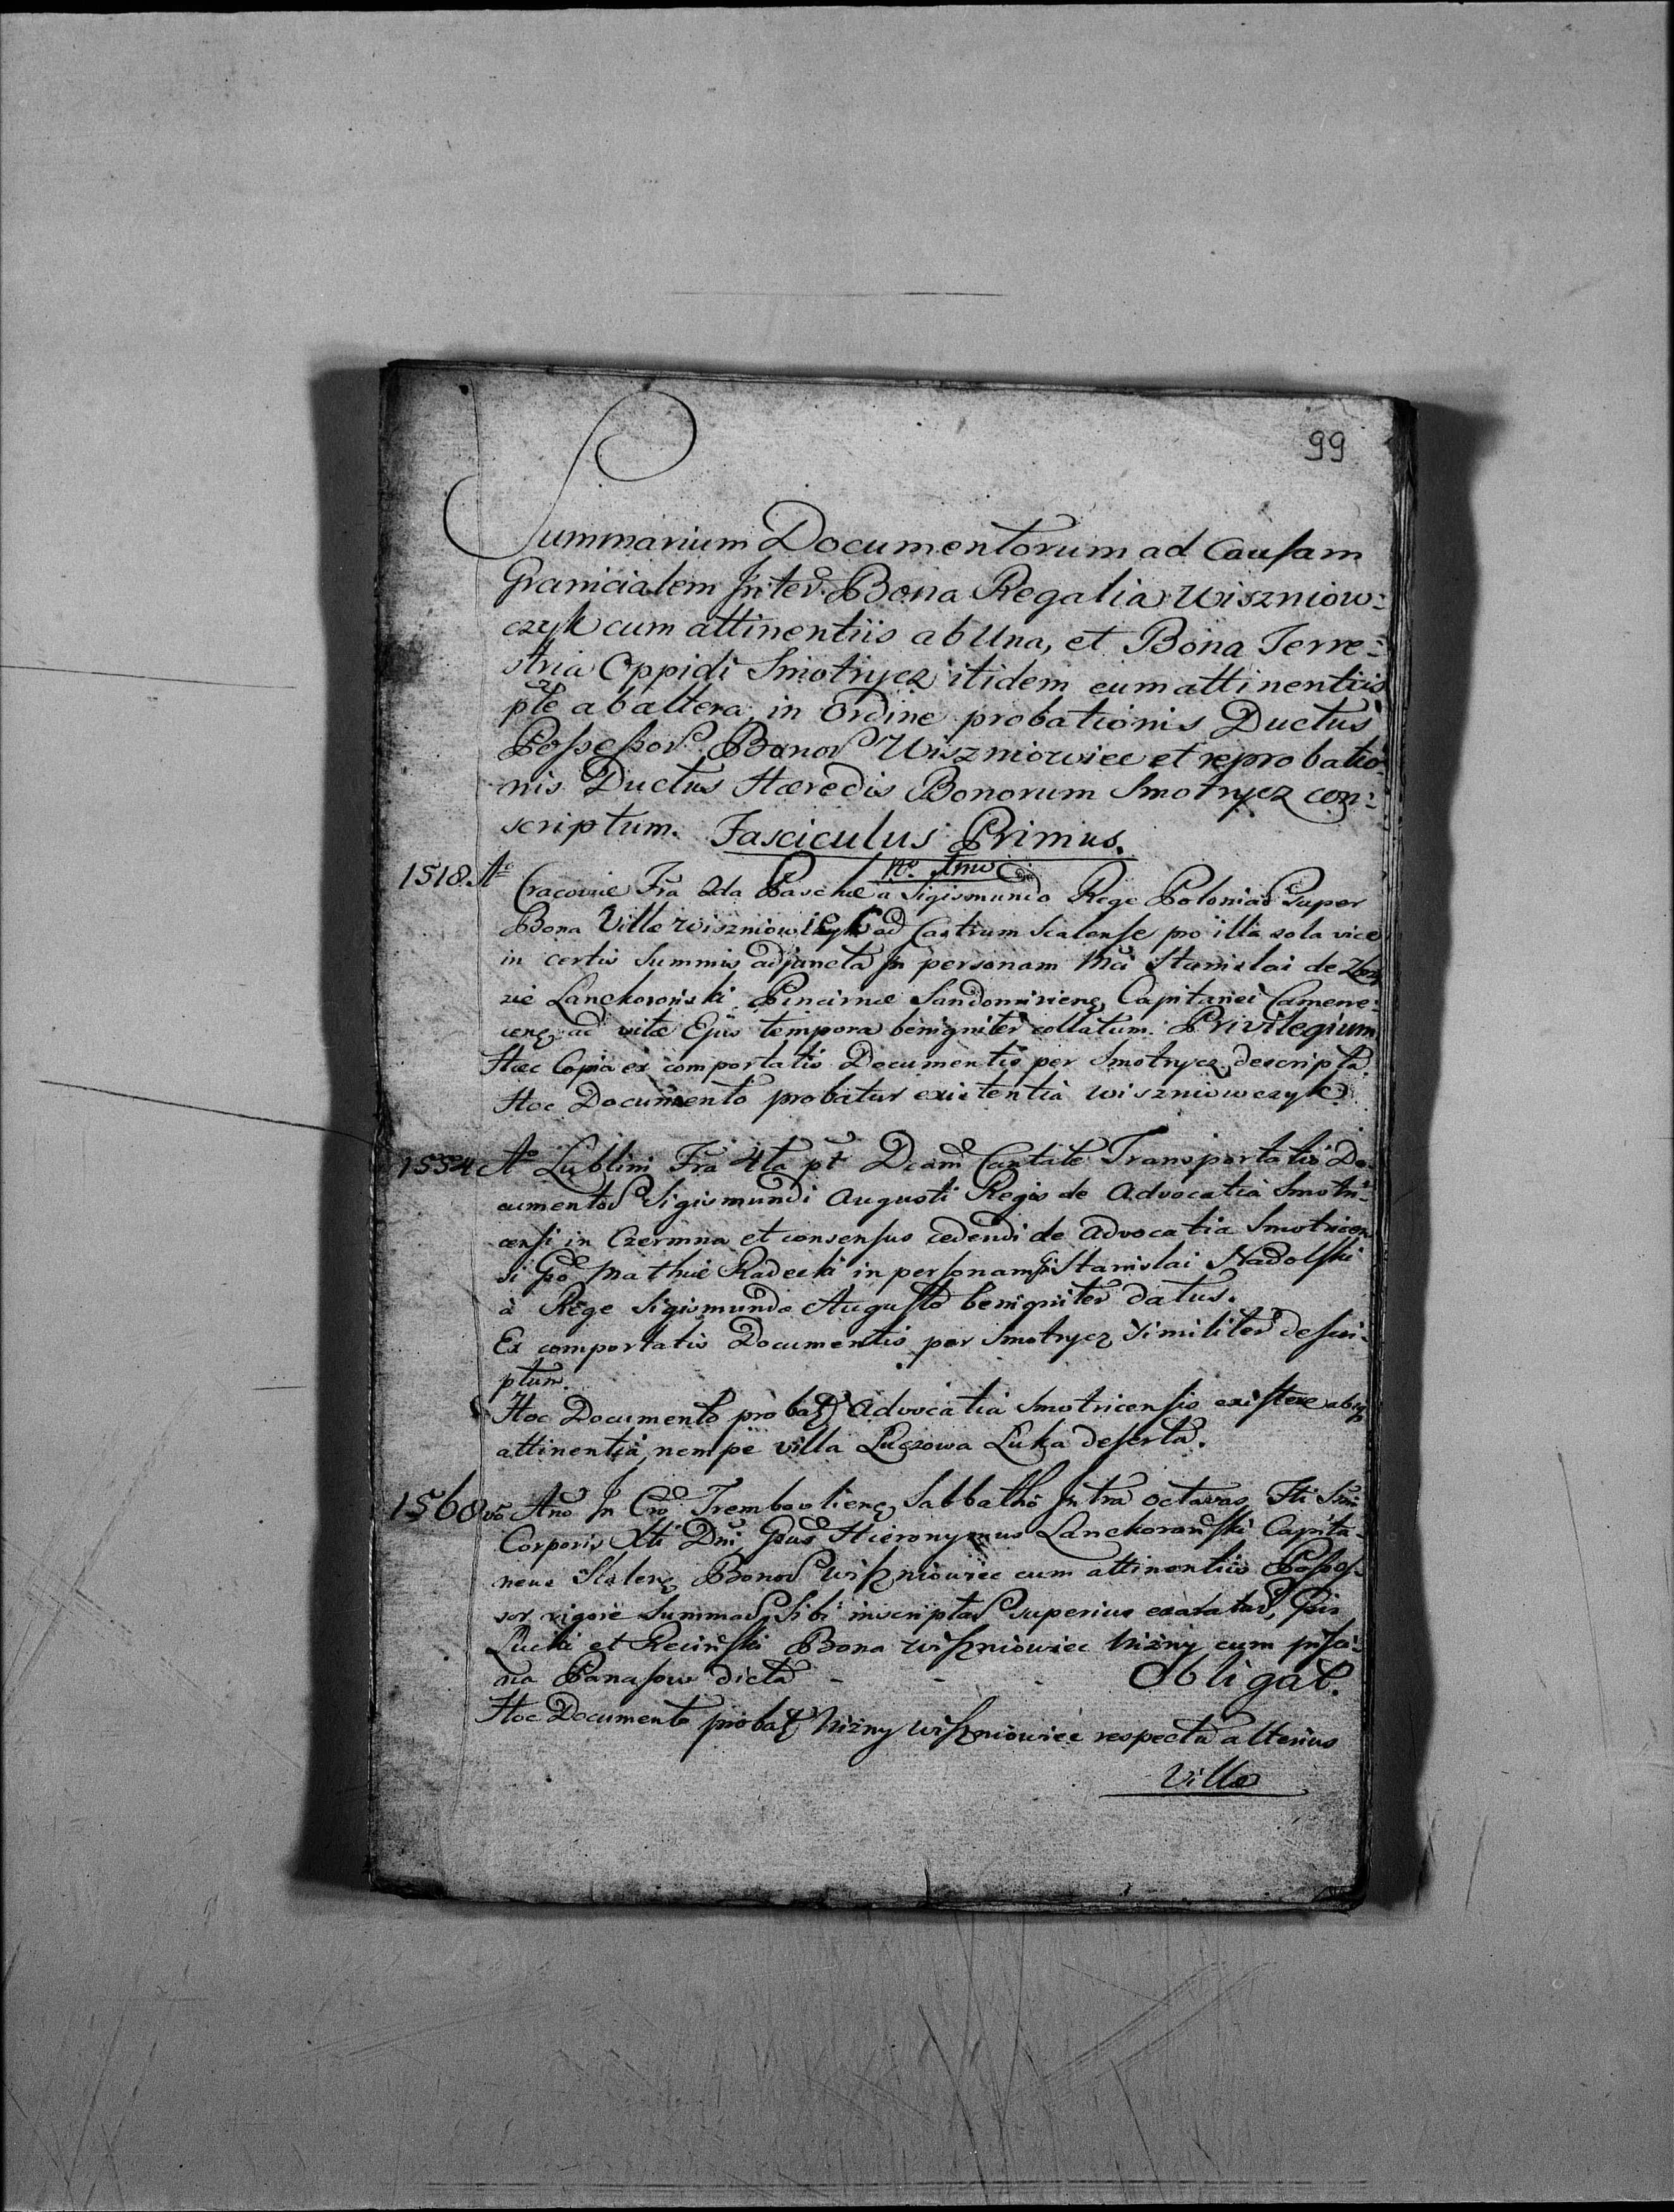 99
Summarium Documentorum ad Causam
Granicialem Inter Bona Regalia Wiszniow:
czyk cum attinentiis ab Una, et Bona Terre:
stria Oppidi Smotrycz itidem cum attinentiis
pte ab altera, in Ordine probationis Ductus
Possessor Bonor Wiszniowiec et reprobatio:
nis Ductus Hæredis Bonorum Smotrycz con:
scriptum. Fasciculus Primus.
No 1mo
1518. Ao Cracoviæ Fra 2da Paschæ a Sigismundo Rege Poloniæ Super
Bona Villæ Wiszniowczyk ad Castrum Scalense pro illa sola vice
in certis Summis adjuncta In personam Mci Stanislai de
zie Lanckoroński Pincernæ Sandomirieng, Capitanei Camene:
ceng ad vitæ Ejus tempora benigniter collatum. Privilegium
Hæc Copia ex comportatis Documentis per Smotrycz descripta.
Hoc Documento probatur existentia Wiszniowczyk
1554 Ao Lublini Fra 4ta pt Dcam Cantate Transportatio Do:
cumentor Sigismundi Augusti Regis de Advocatia Smotri:
censi in Czermna et consensus cedendi de Advocatia Smotricen
si Gso Mathiæ Radecki in personam Gsi Stanislai Nadolski
à Rege Sigismundo Augusto benigniter datus.
Ex comportatis Documentis per Smotrycz Similiter descri:
ptum.
Hoc Documento probat Advocatia Smotricensis existere absq
attinentia, nempe villa Luczowa Luka deserta.
1560 vo Ano In Cro Trembowlieng Sabbatho Intra octavas Fti Smi
Corporis Xti Dni, Gsus Hieronymus Lanckoroński Capita:
neus Scaleng Bonor Wiszniowiec cum attinentiis Posses:
sor vigore Summar Sibi inscriptar superius exaratar, Gsis
Lucki et Reciński Bona Wiszniowiec Niżny cum pisci:
na Panasow dicta - - - Obligat.
Hoc Documento probat Niżny Wiszniowiec respectu alterius
Villæ